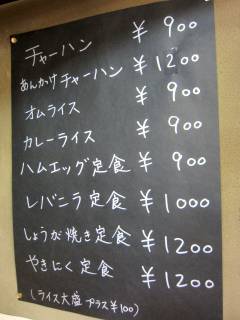 チャーハン ¥900
あんかけチャーハン ¥1200
オムライス ¥900
カレーライス ¥900
ハムエッグ定食 ¥900
レバニラ定食 ¥1000
しょうが焼き定食 ¥1200
やきにく定食 ¥1200
(ライス大盛プラス¥100)